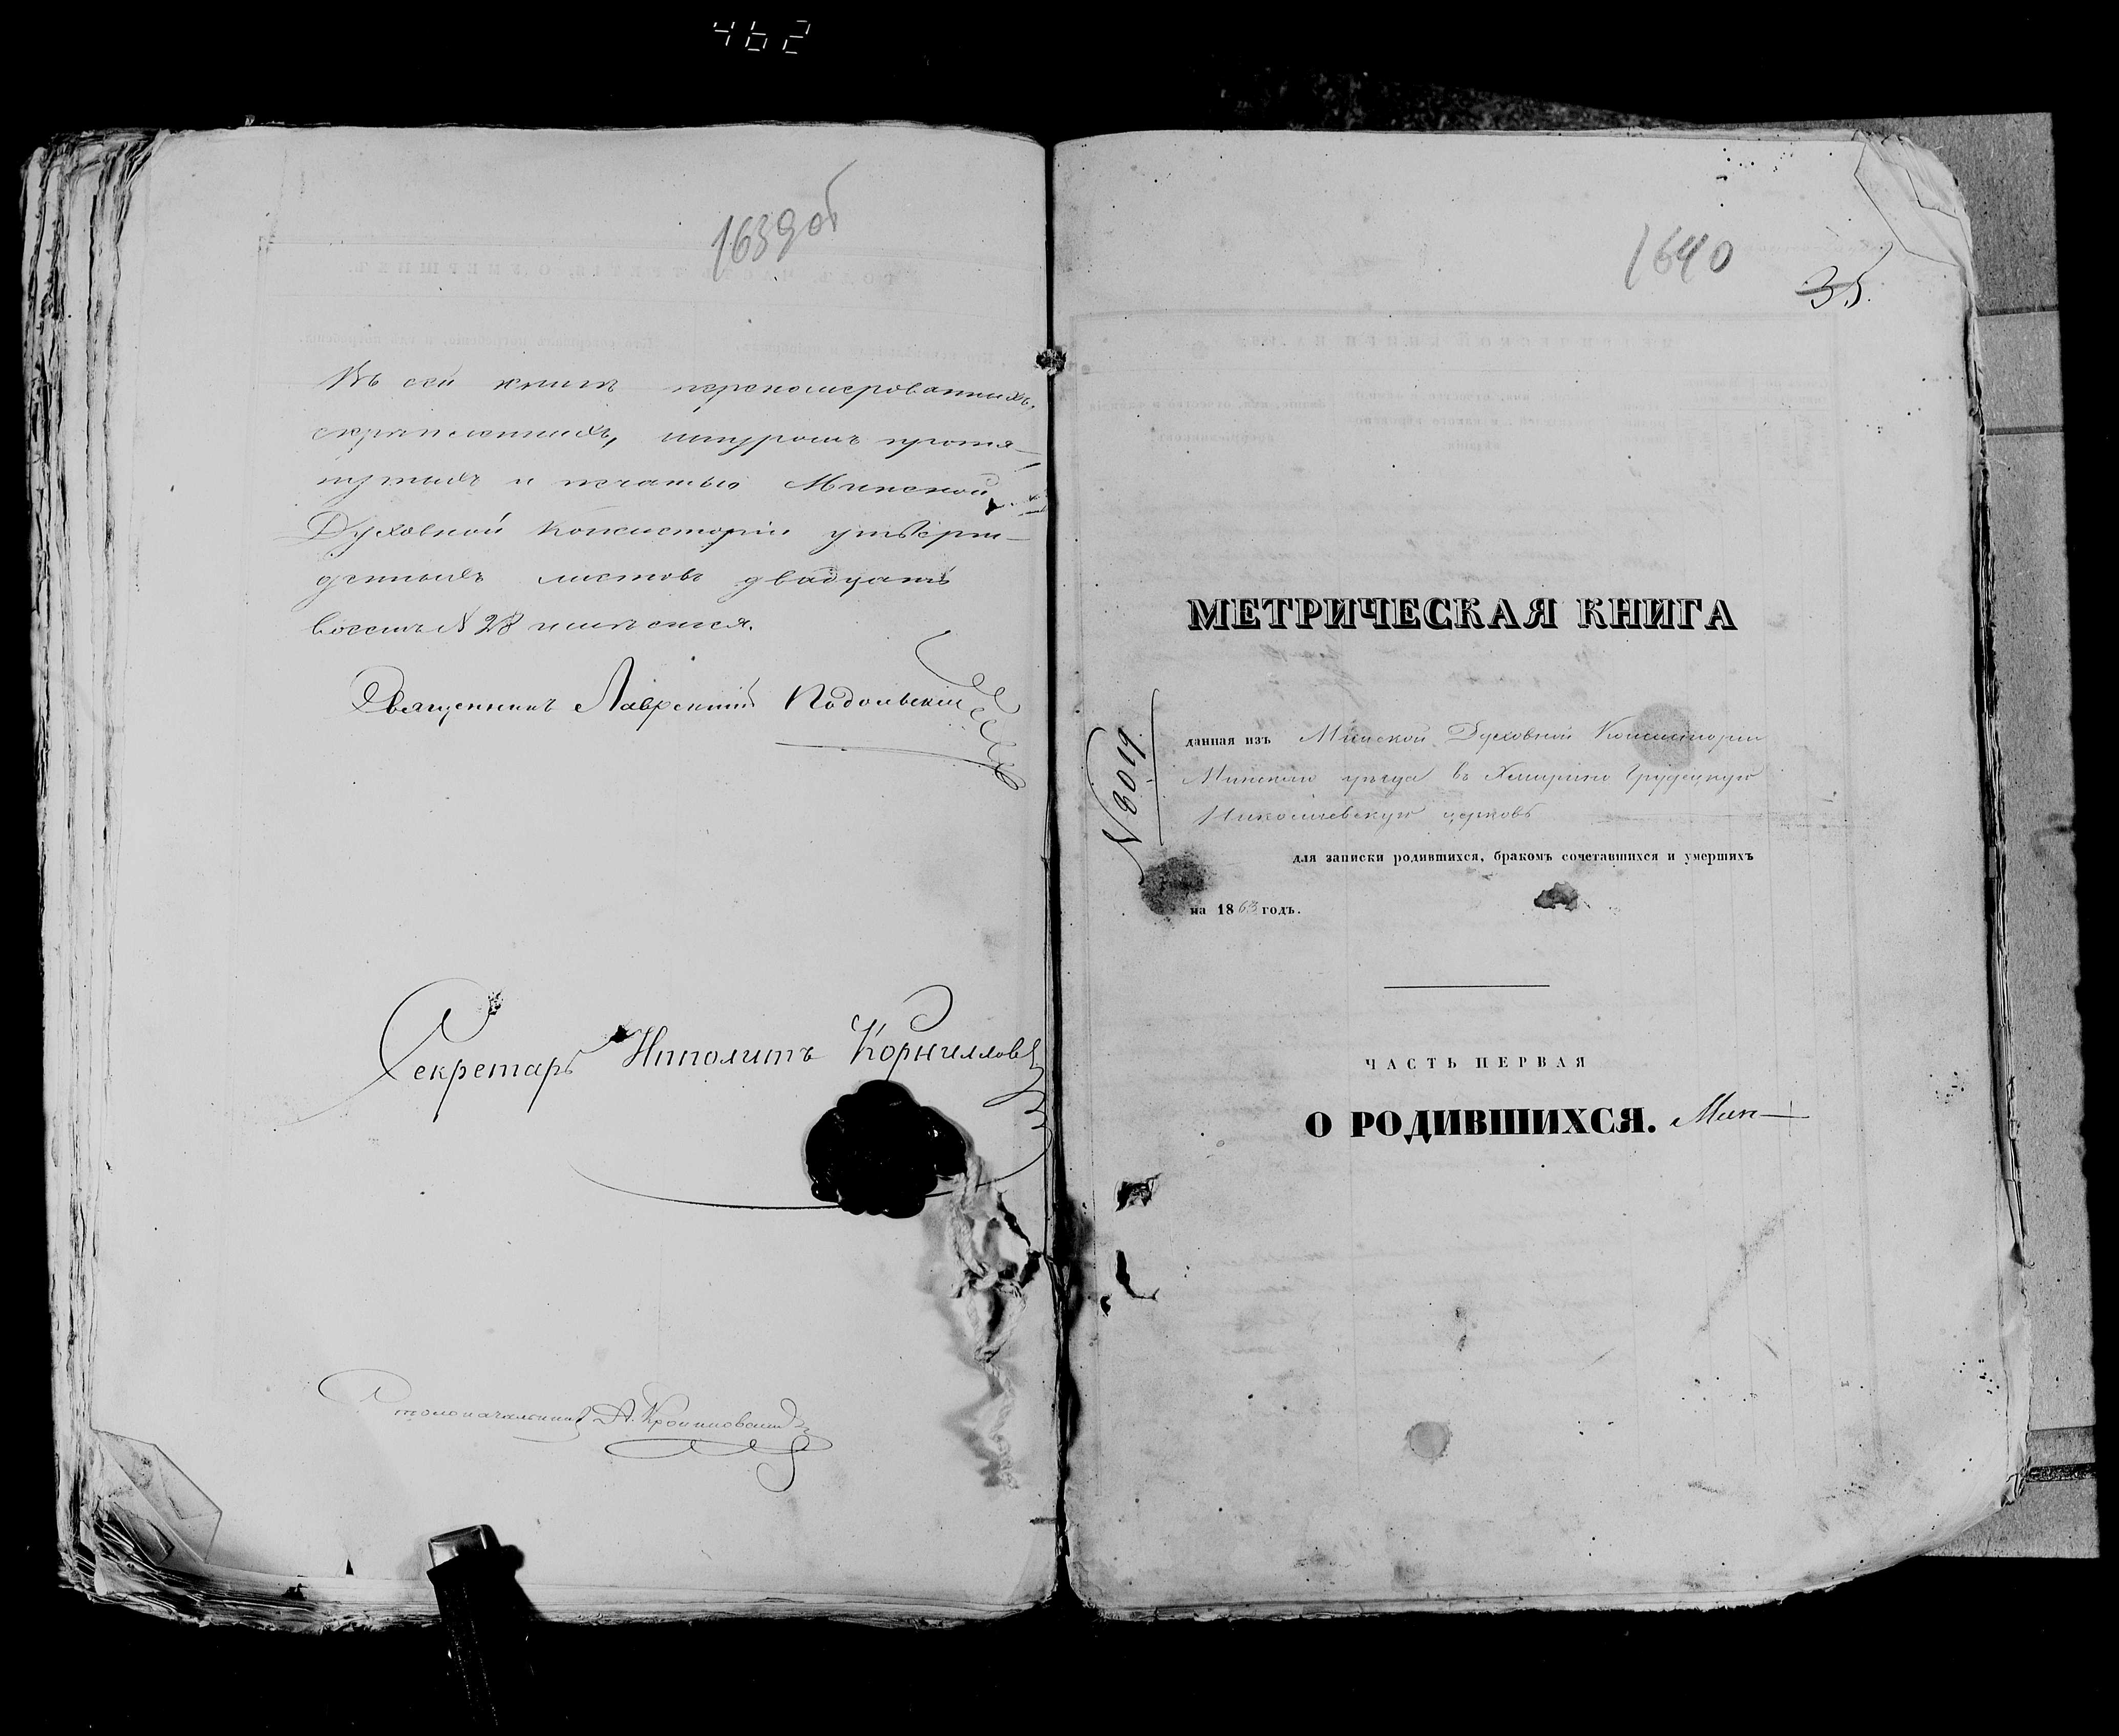 462
1639об
Въ сей книгѣ перенумерованныхъ,
скрѣпленныхъ, шнуромъ протя-
нутыхъ и печатью Минской
Духовной Консисторіи утверж-
денныхъ листовъ двадцать
восемь № 28 имѣется.
Священникъ Лаврентій Подольскій
Секретарь Ипполитъ Корниловъ
Столоначальникъ А.
1640
35.
МЕТРИЧЕСКАЯ КНИГА
данная изъ Минской Духовной Консисторіи
Минскаго уѣзда въ Грудецкую
Николаевскую церковь
№ 8019.
для записки родившихся, бракомъ сочетавшихся и умершихъ
на 1863 годъ.
ЧАСТЬ ПЕРВАЯ
О РОДИВШИХСЯ. Мин-